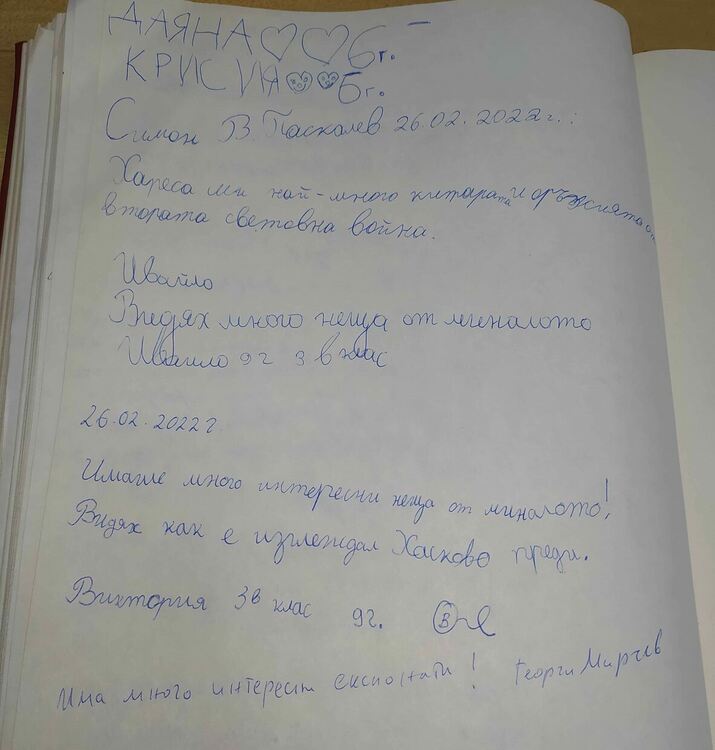 ДАЯНА 6г.
КРИСИЯ 6г.
Симон В. Паскалев 26.02.2022г.:
Хареса ми най-много китарата и оръжията от
втората световна война.
Ивайло
Видях много неща от миналото
Ивайло 9г 3 в клас
26.02.2022г
Имаше много интересни неща от миналото!
Видях как е изглеждал Хасково преди.
Виктория 3в клас 9г. В
Има много интересни експонати! Георги Мирчев